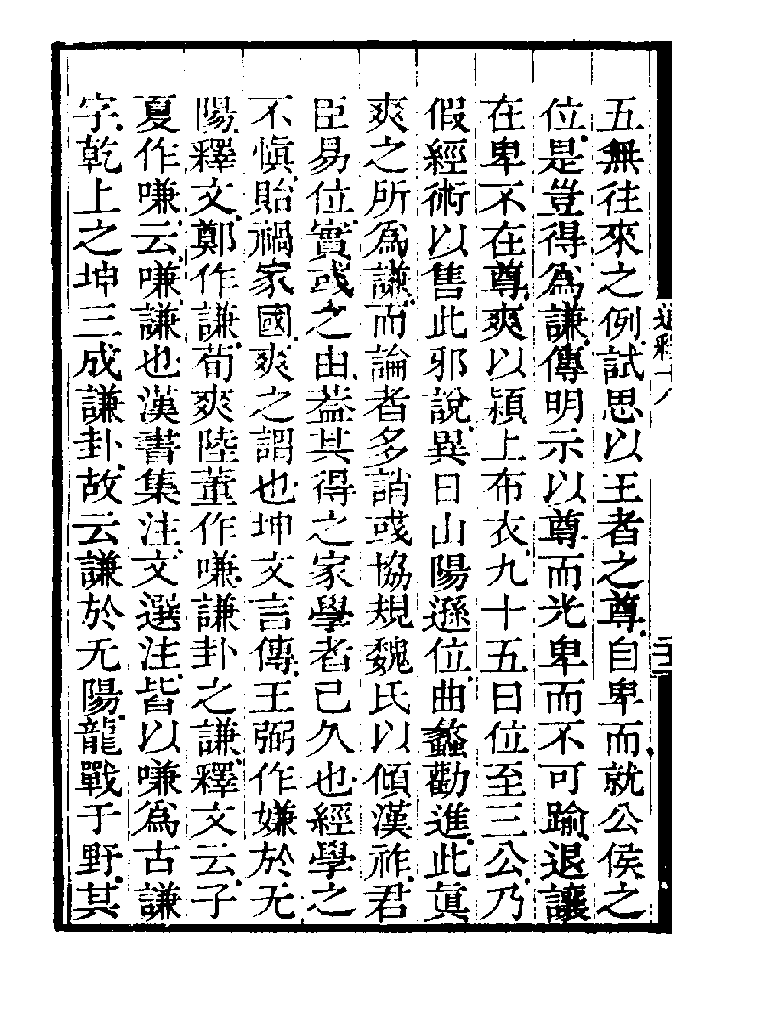 五無往來之例試思以王者之尊自卑而就公侯之
位是豈得爲謙傳明示以尊而光卑而不可踰退讓
在卑不在尊爽以潁上布衣九十五日位至三公乃
假經術以售此邪說異日山陽遜位曲蠡勸進此眞
爽之所爲謙而論者多誚彧協規魏氏以傾漢祚君
臣易位實彧之由葢其得之家學者已久也經學之
不愼貽禍家國爽之謂也坤文言傳王弼作嫌於无
陽釋文鄭作謙荀爽陸董作嗛謙卦之謙釋文云子
夏作嗛云嗛謙也漢書集注文選注皆以嗛爲古謙
字乾上之坤三成謙卦故云謙於无陽龍戰于野其
通釋十八